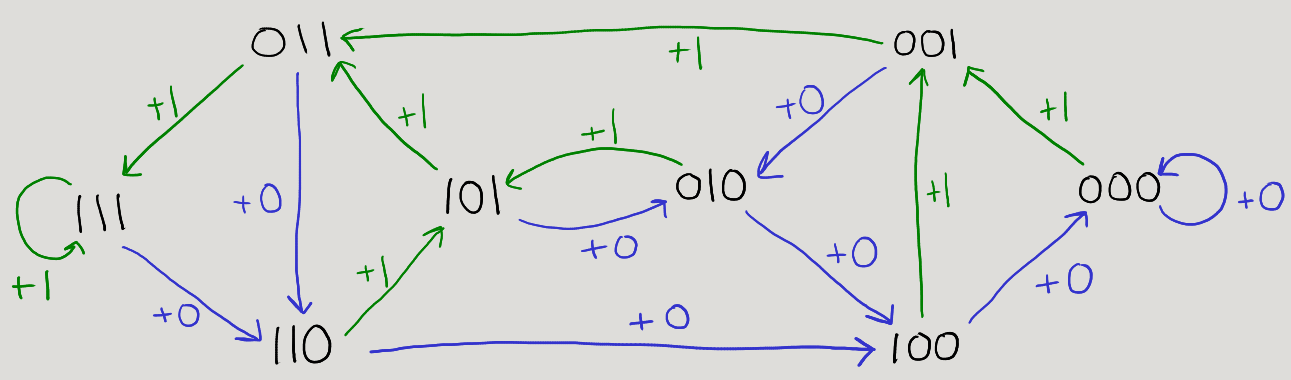 011
001
+1
+1
+0
+1
+1
+1
111
+0
101
010
+1
000
+0
+1
+0
+1
+0
+0
+0
+0
110
100